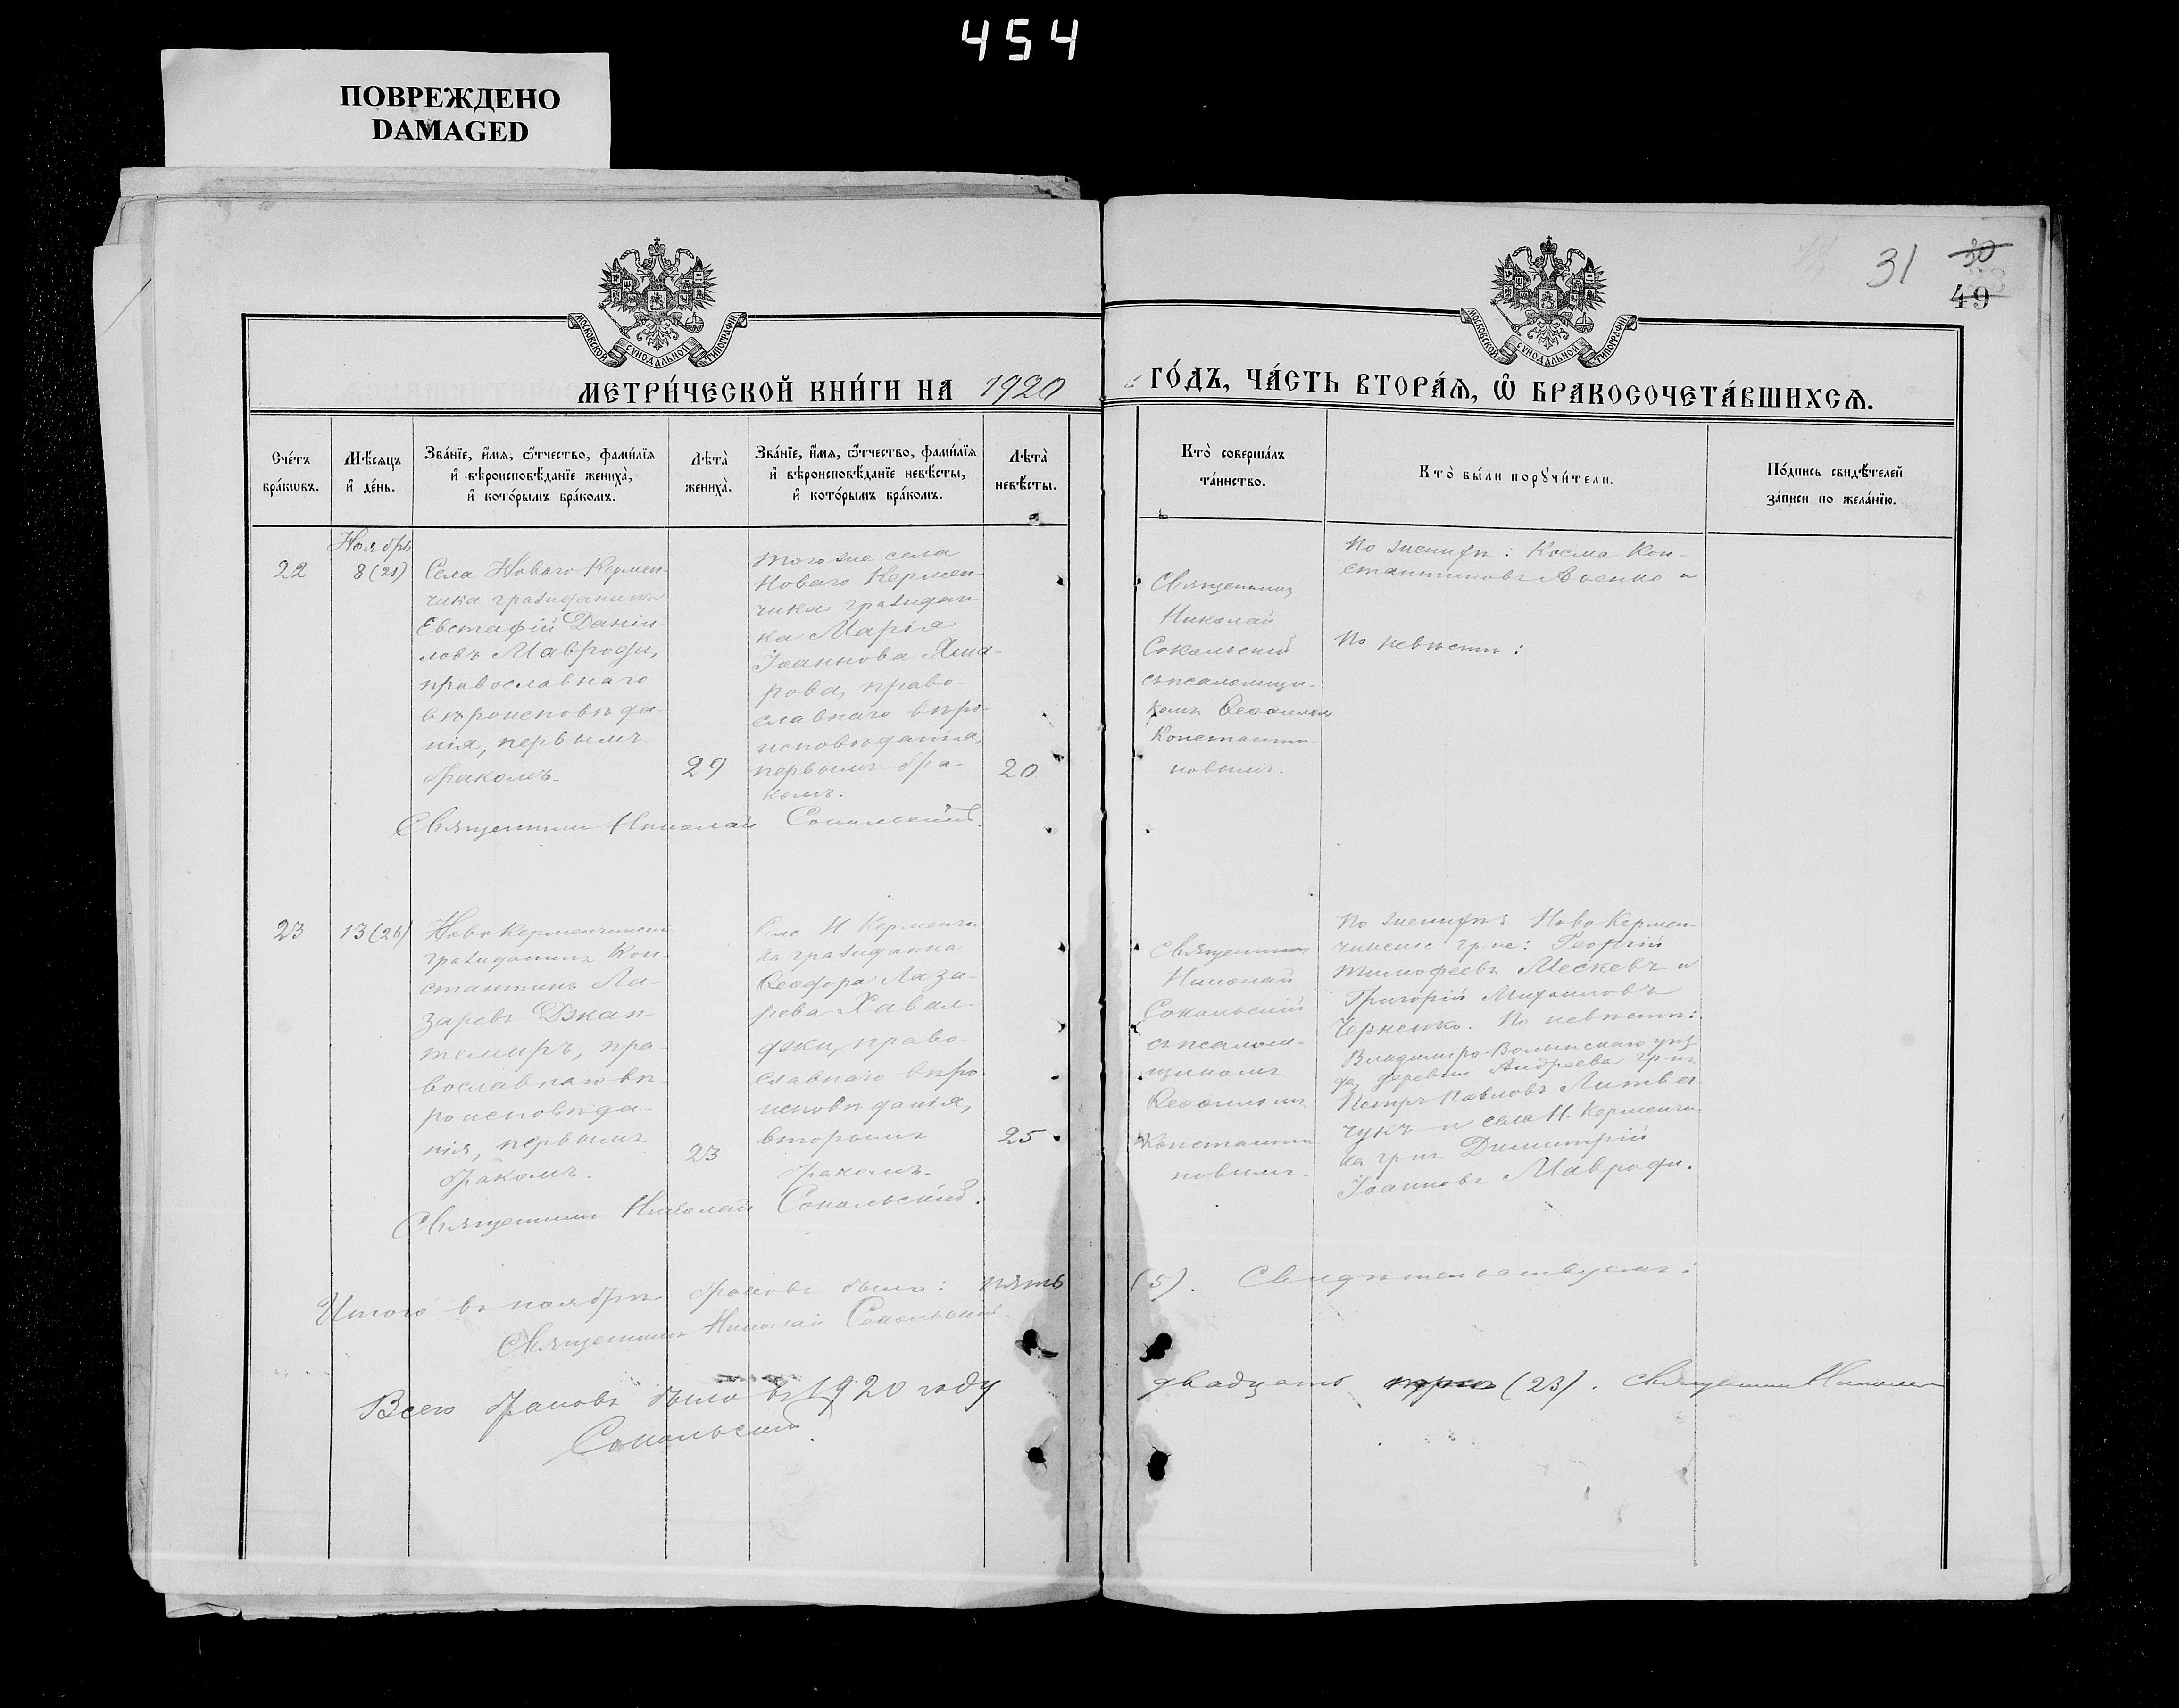 454
ПОВРЕЖДЕНО
DAMAGED
31
30
49
МОСКОВСКОЙ СѴНОДАЛЬНОЙ ТИПОГРАФІИ
МОСКОВСКОЙ СѴНОДАЛЬНОЙ ТИПОГРАФІИ
МЕТРИ́ЧЕСКОЙ КНИ́ГИ НА 1920
ГО́ДЪ, ЧА́СТЬ ВТОРА́Ѧ, Ѡ҆ БРАКОСОЧЕТА́ВШИХСѦ.
Сче́тъ
бра́кѡвъ.
Мѣ́сѧцъ
и҆ де́нь.
Зва́нїе, и҆́мѧ, ѻ҆́тчество, фами́лїѧ
и҆ вѣроисповѣ́данїе жениха̀,
и҆ кото́рымъ бра́комъ.
Лѣта̀
жениха̀.
Зва́нїе, и҆́мѧ, ѻ҆́тчество, фами́лїѧ
и҆ вѣроисповѣ́данїе невѣ́сты,
и҆ кото́рымъ бра́комъ.
Лѣта̀
невѣ́сты.
Кто̀ соверша́лъ
та́инство.
Кто̀ бы́ли порꙋчи́тели.
По́дпись свидѣ́телей
за́писи по жела́нїю.
22
Ноябрь
8 (21)
Села Новаго Кермен-
чика гражданинъ
Евстафій Даніи-
ловъ Мавроди,
православнаго
вѣроисповѣда-
нія, первымъ
бракомъ.
29
того же села
Новаго Кермен-
чика граждан-
ка Марія
Іоаннова Яма-
рова, право-
славнаго вѣро-
исповѣданія,
первымъ бра-
комъ.
20
Священникъ
Николай
Сокольскій
съ псаломщи-
комъ
Константи-
новымъ.
По женихѣ: Косма Кон-
стантиновъ и
По невѣстѣ:
Священникъ Николай Сокольскій.
23
13 (26)
Ново Керменчикскій
гражданинъ Кон-
стантинъ Ла-
заревъ Джан-
темиръ, пра-
вославнаго вѣ-
роисповѣда-
нія, первымъ
бракомъ.
23
Села Н Керменчи-
ка гражданка
Ѳеодора Лаза-
рева Хавал-
джи, право-
славнаго вѣро-
исповѣданія,
вторымъ
бракомъ.
25
Священникъ
Николай
Сокольскій
съ псалом-
щикомъ
Константи-
новымъ.
По женихѣ Ново-Кермен-
чикскіе гр-не: Георгій
Тимофеевъ Мескевъ и
Григорій Михаиловъ
Черненко. По невѣстѣ:
Владимиро-Волынскаго уѣз-
да, деревни Андреева гр-нъ
Петръ Павловъ Литвин-
чукъ и села Н. Керменчи-
ка гр-нъ Димитрій
Іоанновъ Мавроди.
Священникъ Николай Сокольскій.
Итого въ ноябрѣ браковъ было: пять (5). Свидѣтельствуемъ:
Священникъ Николай Сокольскій
Всего браковъ было въ 1920 году двадцать (23). Священникъ Николай
Сокольскій.